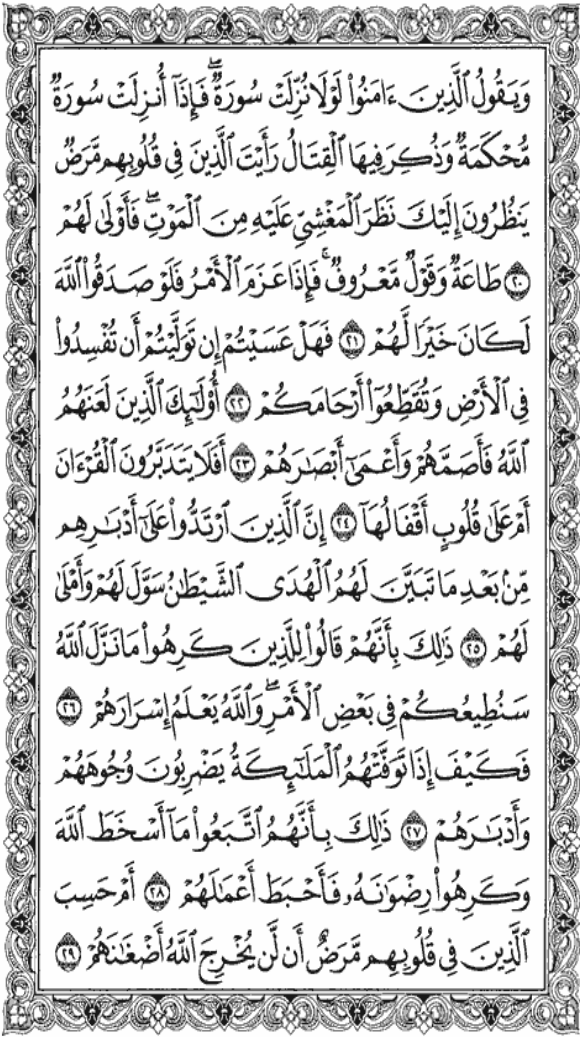 وَيَقُولُ ٱلَّذِينَ ءَامَنُوا۟ لَوْلَا نُزِّلَتْ سُورَةٌۖ فَإِذَآ أُنزِلَتْ سُورَةٌ
مُّحْكَمَةٌ وَذُكِرَ فِيهَا ٱلْقِتَالُ رَأَيْتَ ٱلَّذِينَ فِى قُلُوبِهِم مَّرَضٌ
يَنظُرُونَ إِلَيْكَ نَظَرَ ٱلْمَغْشِىِّ عَلَيْهِ مِنَ ٱلْمَوْتِۖ فَأَوْلَىٰ لَهُمْ
٢٠ طَاعَةٌ وَقَوْلٌ مَّعْرُوفٌۚ فَإِذَا عَزَمَ ٱلْأَمْرُ فَلَوْ صَدَقُوا۟ ٱللَّهَ
لَكَانَ خَيْرًا لَّهُمْ ٢١ فَهَلْ عَسَيْتُمْ إِن تَوَلَّيْتُمْ أَن تُفْسِدُوا۟
فِى ٱلْأَرْضِ وَتُقَطِّعُوٓا۟ أَرْحَامَكُمْ ٢٢ أُو۟لَٰٓئِكَ ٱلَّذِينَ لَعَنَهُمُ
ٱللَّهُ فَأَصَمَّهُمْ وَأَعْمَىٰٓ أَبْصَٰرَهُمْ ٢٣ أَفَلَا يَتَدَبَّرُونَ ٱلْقُرْءَانَ
أَمْ عَلَىٰ قُلُوبٍ أَقْفَالُهَآ ٢٤ إِنَّ ٱلَّذِينَ ٱرْتَدُّوا۟ عَلَىٰٓ أَدْبَٰرِهِم
مِّنۢ بَعْدِ مَا تَبَيَّنَ لَهُمُ ٱلْهُدَى ٱلشَّيْطَٰنُ سَوَّلَ لَهُمْ وَأَمْلَىٰ
لَهُمْ ٢٥ ذَٰلِكَ بِأَنَّهُمْ قَالُوا۟ لِلَّذِينَ كَرِهُوا۟ مَا نَزَّلَ ٱللَّهُ
سَنُطِيعُكُمْ فِى بَعْضِ ٱلْأَمْرِۖ وَٱللَّهُ يَعْلَمُ إِسْرَارَهُمْ ٢٦
فَكَيْفَ إِذَا تَوَفَّتْهُمُ ٱلْمَلَٰٓئِكَةُ يَضْرِبُونَ وُجُوهَهُمْ
وَأَدْبَٰرَهُمْ ٢٧ ذَٰلِكَ بِأَنَّهُمُ ٱتَّبَعُوا۟ مَآ أَسْخَطَ ٱللَّهَ
وَكَرِهُوا۟ رِضْوَٰنَهُۥ فَأَحْبَطَ أَعْمَٰلَهُمْ ٢٨ أَمْ حَسِبَ
ٱلَّذِينَ فِى قُلُوبِهِم مَّرَضٌ أَن لَّن يُخْرِجَ ٱللَّهُ أَضْغَٰنَهُمْ ٢٩